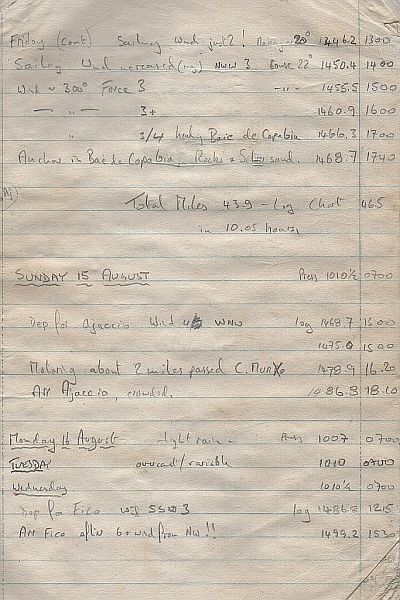 Friday (cont) Sailing Wind just 2! Motoring 20° 1446.2 1300
Sailing Wind increased (ing) NWW 3 Course 22° 1450.4 1400
Wind ~ 300° Force 3 -"- 1455.5 1500
— " — 3+ 1460.9 1600
" 3/4 heading Baie de Copabia 1466.3 1700
Anchor in Baie de Copabia. Rocks & sand. 1468.7 1740
Total Miles 43.9 - Log Chart 46.5
in 10.05 hours
SUNDAY 15 AUGUST Press 1010½ 0700
Dep for Ajaccio Wind WNW log 1468.7 1300
1475.0 1500
Motoring about 2 miles passed C. 1478.9 16.20
Arr Ajaccio, crowded. 1486.8 18.10
Monday 16 August light rain - Press 1007 0700
TUESDAY overcast/variable 1010 0700
Wednesday 1010½ 0700
Dep for Fico wind SSW 3 log 1486.8 1215
Arr Fico after 6+ wind from NW!! 1499.2 1530